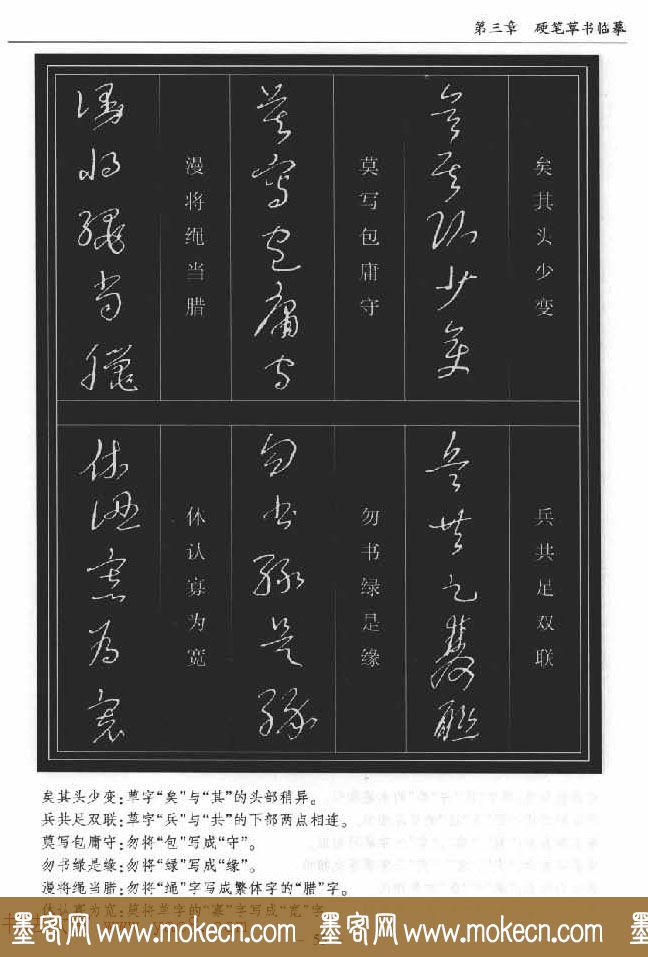 第三章 硬笔草书临摹
矣其头少变
矣其头少变
莫写包庸守
莫写包庸守
漫将绳当腊
漫将绳当腊
兵共足双联
兵共足双联
勿书绿是缘
勿书绿是缘
休认寡为宽
休认寡为宽
矣其头少变:草字“矣”与“其”的头部稍异。
兵共足双联:草字“兵”与“共”的下部两点相连。
莫写包庸守:勿将“包”写成“守”。
勿书绿是缘:勿将“绿”写成“缘”。
漫将绳当腊:勿将“绳”字写成繁体字的“腊”字。
休认寡为宽:莫将草字的“寡”字写成“宽”字
墨客网www.mokecn.com 墨客网www.mokecn.com